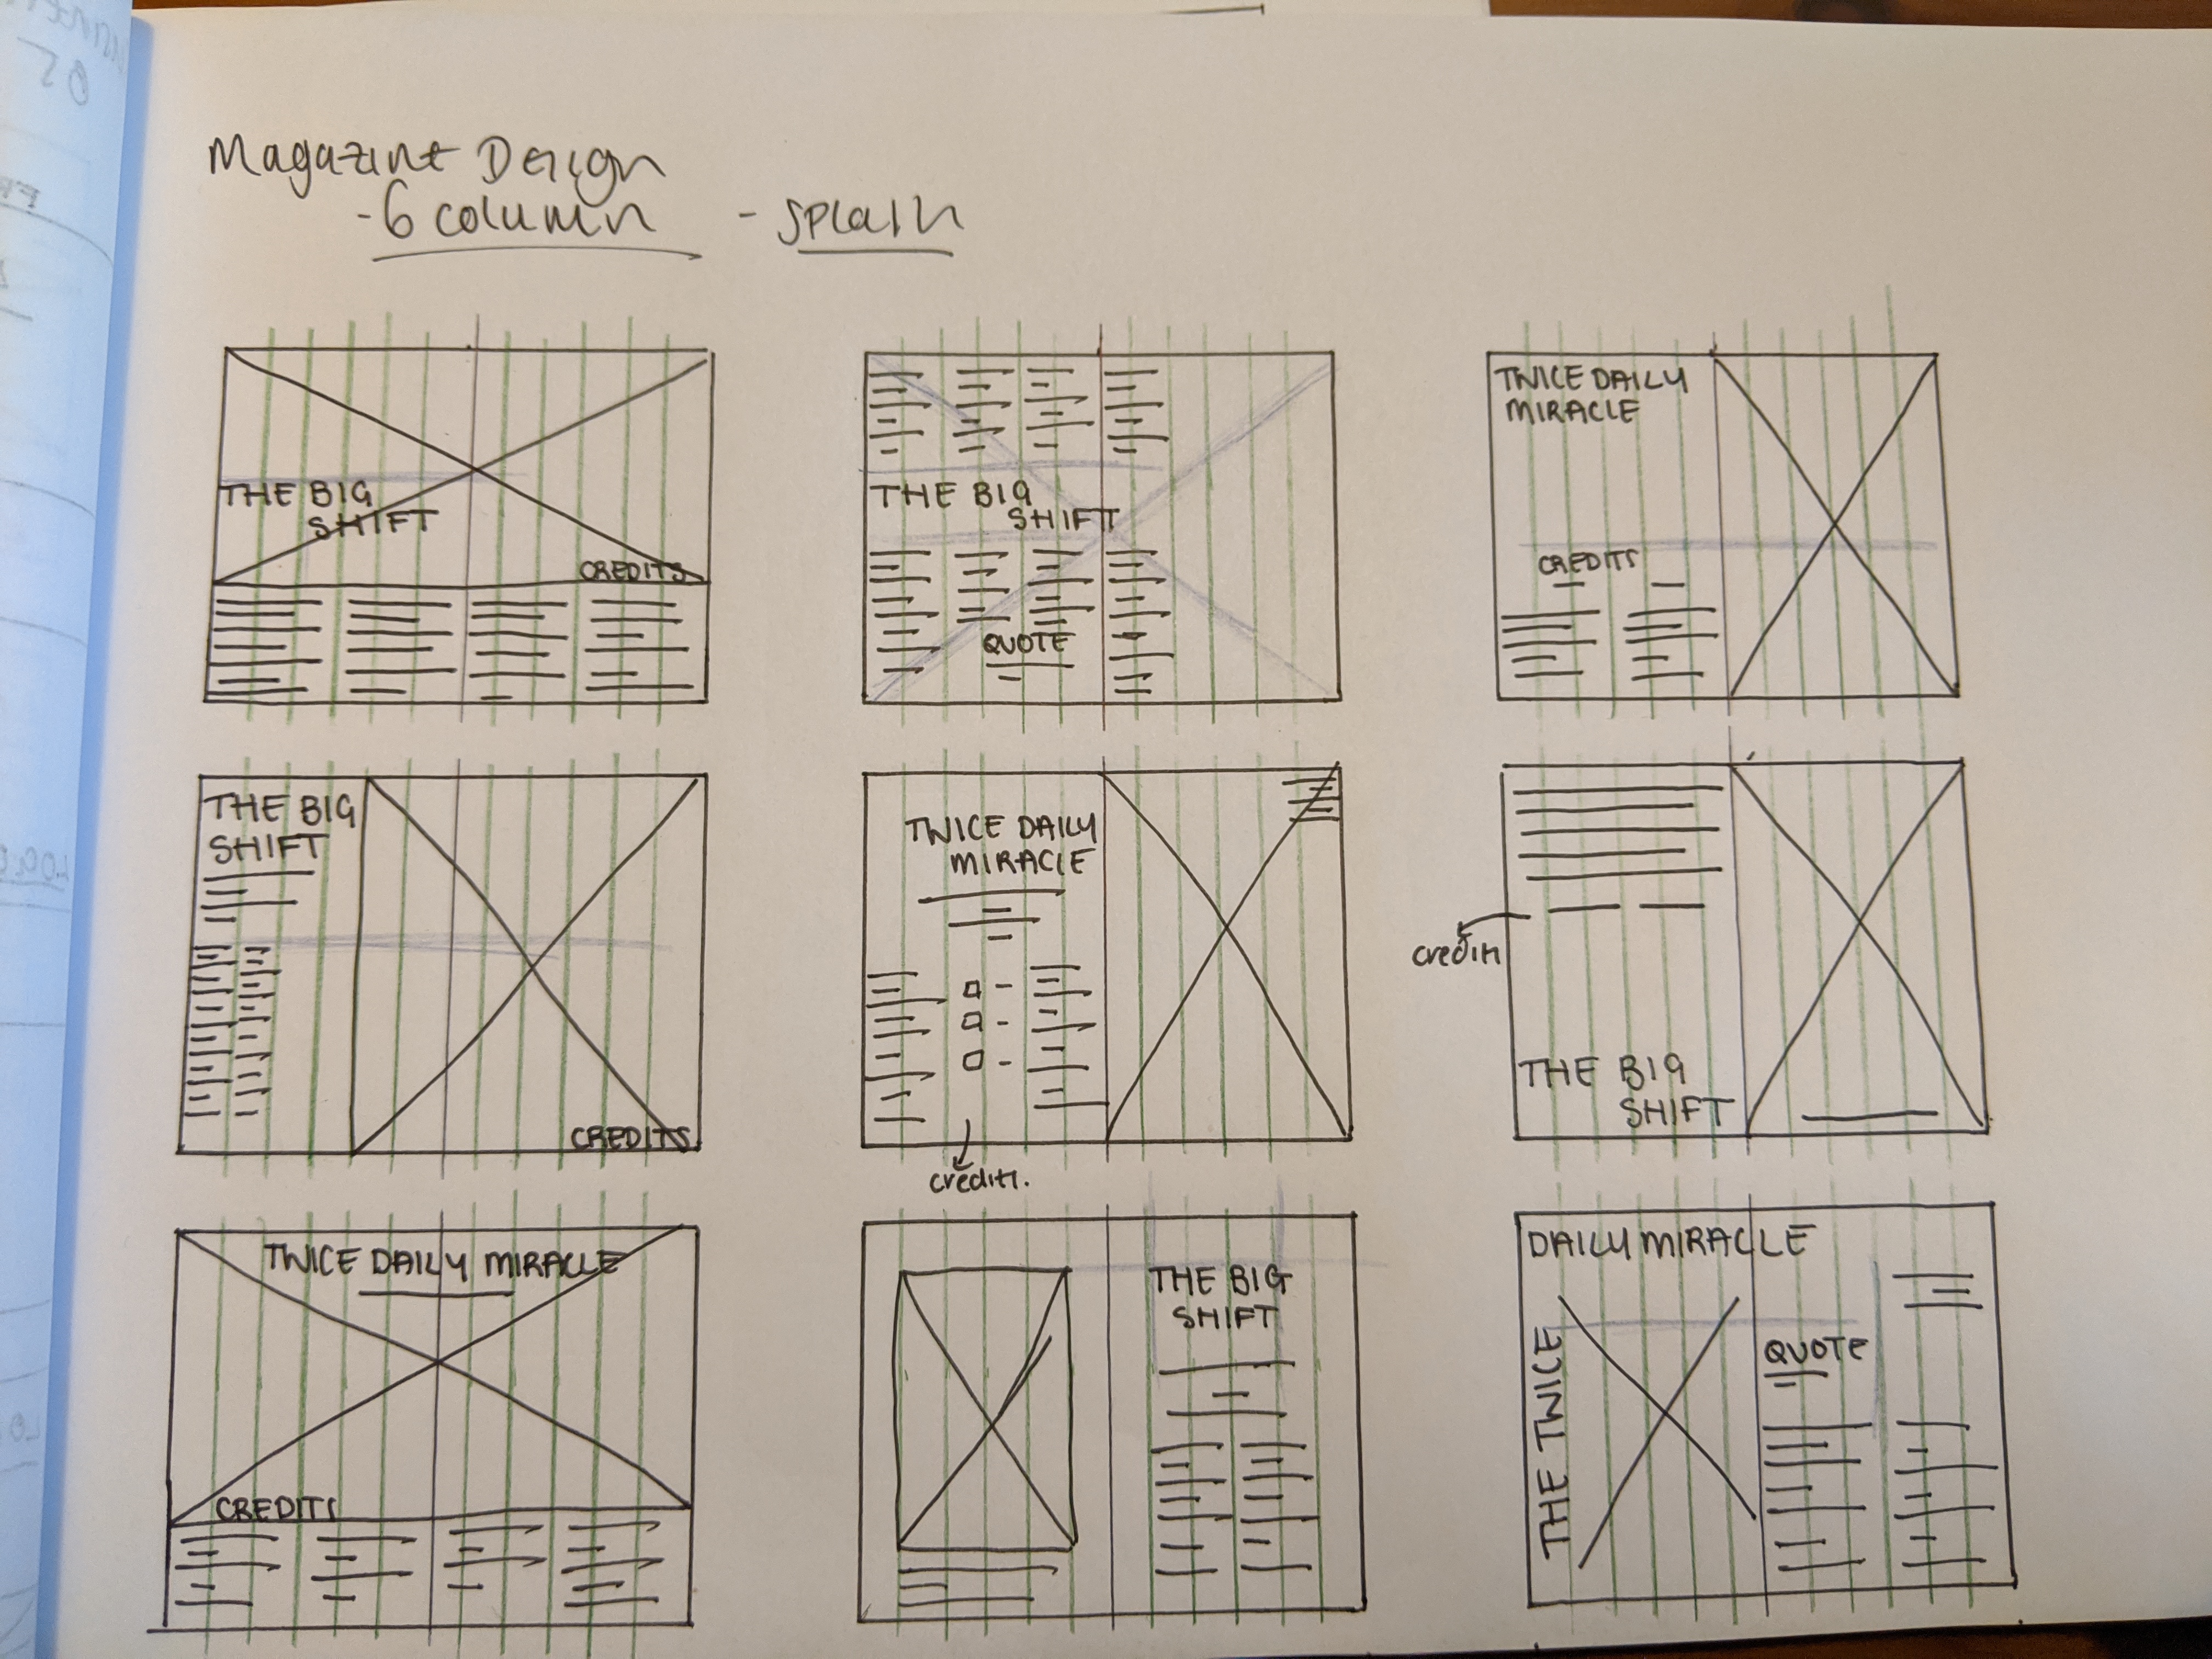 Magazine Design
- 6 column - splash
THE BIG
SHIFT
CREDITS
THE BIG
SHIFT
QUOTE
TWICE DAILY
MIRACLE
CREDITS
THE BIG
SHIFT
CREDITS
TWICE DAILY
MIRACLE
credits.
credits
THE BIG
SHIFT
TWICE DAILY MIRACLE
CREDITS
THE BIG
SHIFT
DAILY MIRACLE
THE TWICE
QUOTE